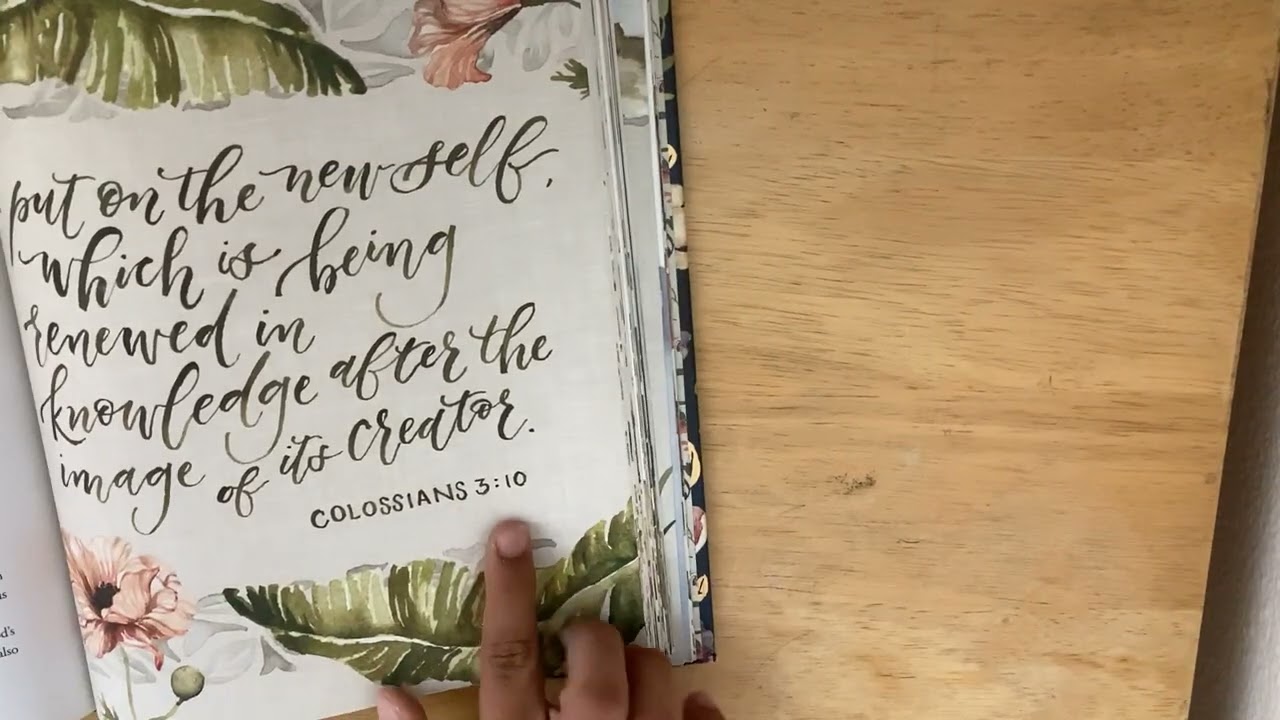 put on the new self,
which is being
renewed in
knowledge after the
image of its creator.
COLOSSIANS 3:10
d's
also